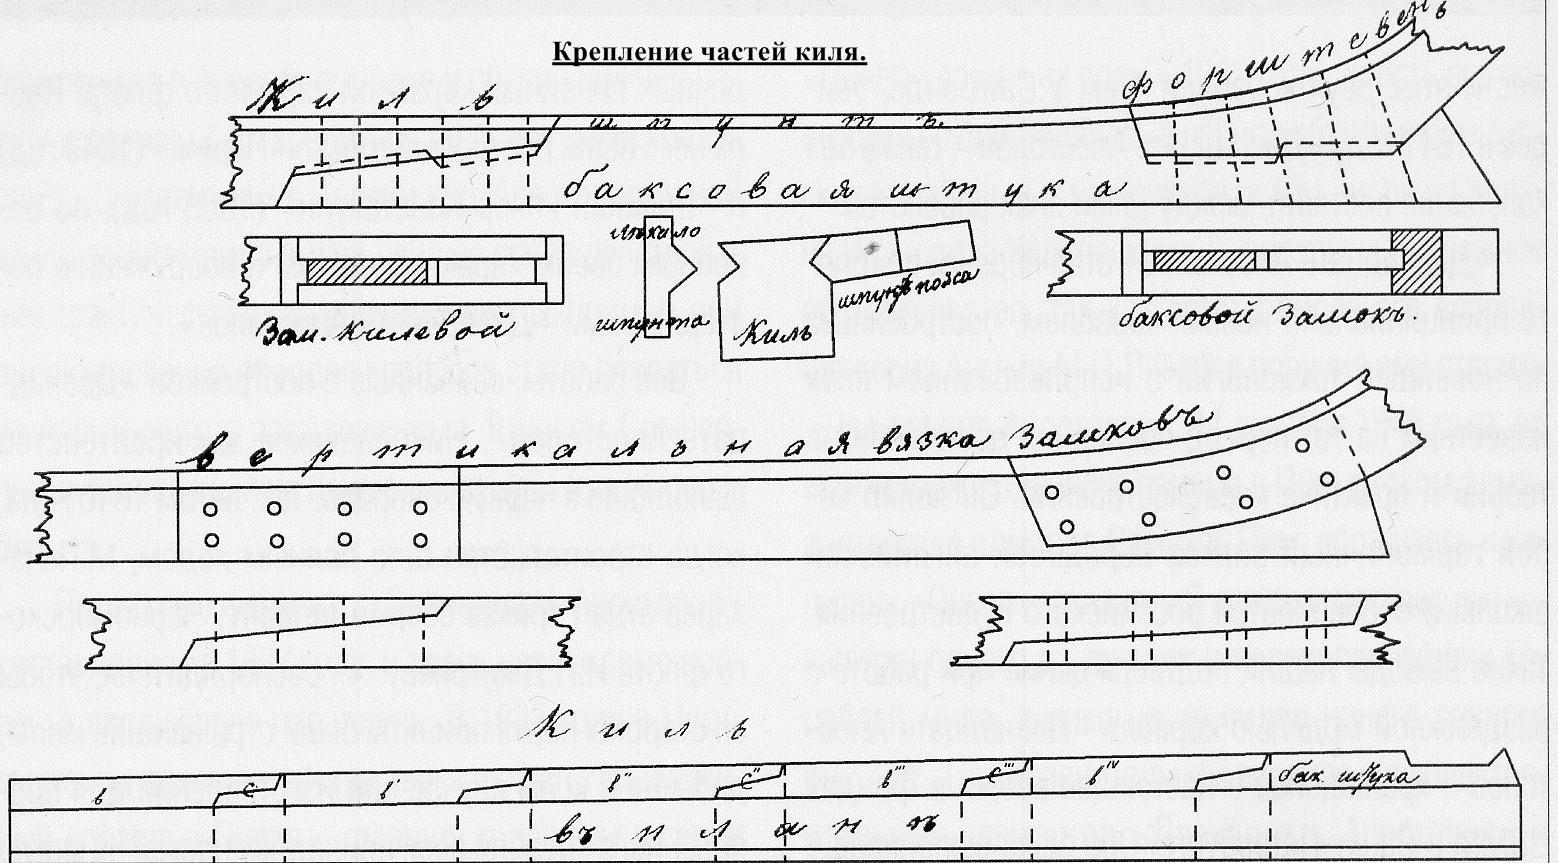 Крепление частей киля.
Киль
Форштевень
шпунтъ.
баксовая штука
лекало
шпунта
шпунт пояса
Киль
Зам. Килевой
баксовой Замокъ.
вертикальная вязка Замковъ
Киль
в с в' в" с" в''' с''' в'ᵛ бак. штука
въ планъ